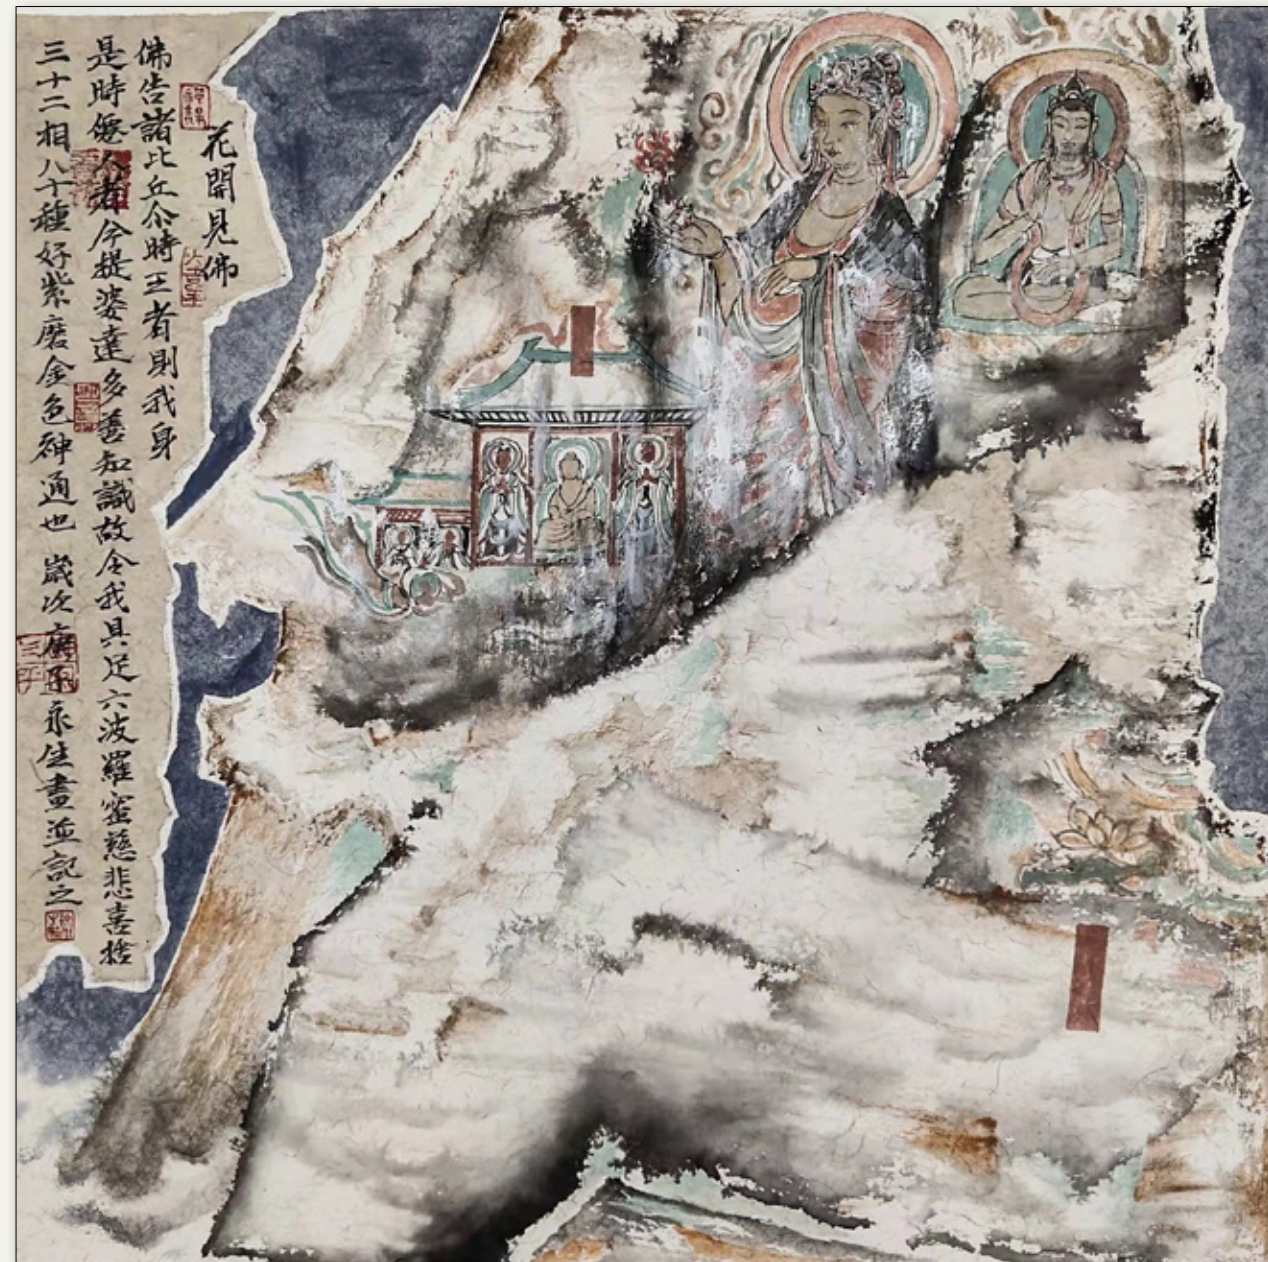 花開見佛
佛告諸比丘尒時王者則我身
是時僊人者今提婆達多善知識故令我具足六波羅蜜慈悲喜捨
三十二相八十種好紫磨金色神通也 歲次庚子永生畫並記之